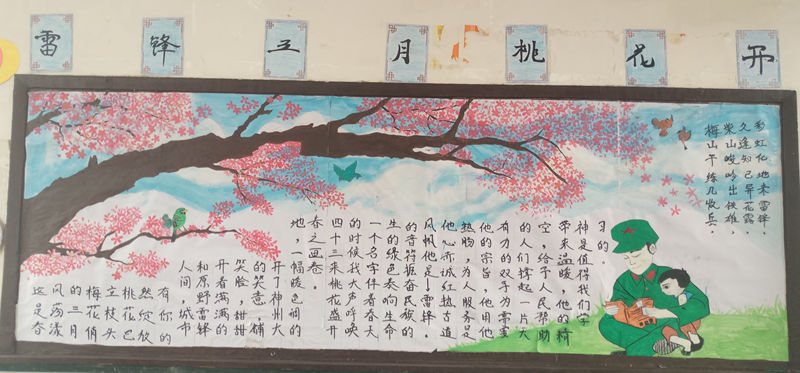 雷锋三月桃花开
彩虹化地来雷锋,
久逢知己异花露。
柴山峻岭出铁雄,
梅山下练几收兵。
这是春
风荡漾
的三月
梅花俏
立枝头
桃花已
然绽放
有你的
人间,城市
和原野雷锋
开着满满的
笑脸,甜甜
的笑意,铺
开了神州大
地,一幅暖色调的
春之画卷。
四十三来桃花盛开
的时候我大声呼唤
一个名字伴着春天
生的绿色奏响生命
的音符振奋民族的
风帆他是!雷锋。
他心赤诚红热古道
热肠,为人服务是
他的宗旨,他用他
有力的双手为需要
的人们撑起一片天
空,给予人民帮助
带来温暖,他的精
神是值得我们学
习的。